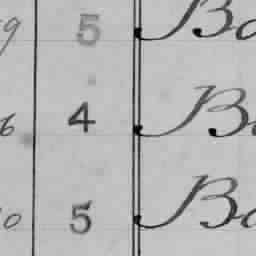 9 5 Ba
6 4 Ba
0 5 Ba